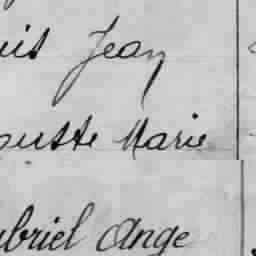 uis Jean
ouste Marie
abriel Ange